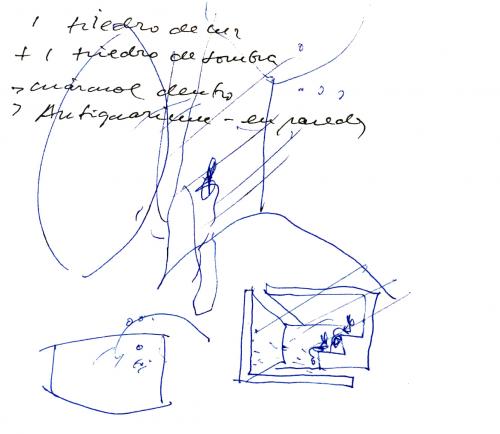 1 triedro de luz
+ 1 triedro de sombra
> mármol dentro
> Antiquarium - en paredes